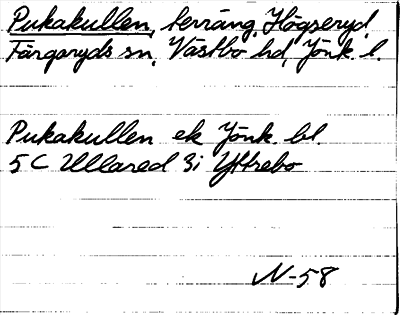 Pukakullen, terräng, Högseryd,
Färgaryds sn, Västbo hd, Jönk. l.
Pukakullen ek Jönk. bl.
5 C Ullared 3i Yttrebo
N-58